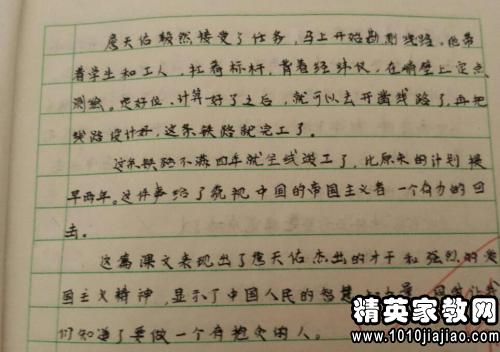 詹天佑毅然接受了任务,马上开始勘测线路。他带
着学生和工人,扛着标杆,背着经纬仪,在峭壁上定点、
测绘。定好位、计算好了之后,就可以去开凿线路了,再把
线路设计好,这条铁路就完工了。
这条铁路不满四年就全线竣工了,比原来的计划提
早两年。这件事给了藐视中国的帝国主义者一个有力的回
击。
这篇课文表现出了詹天佑杰出的才干和强烈的爱
国主义精神,显示了中国人民的智慧
们知道了要做一个有抱负的人。
精英家教网
www.1010jiajiao.com